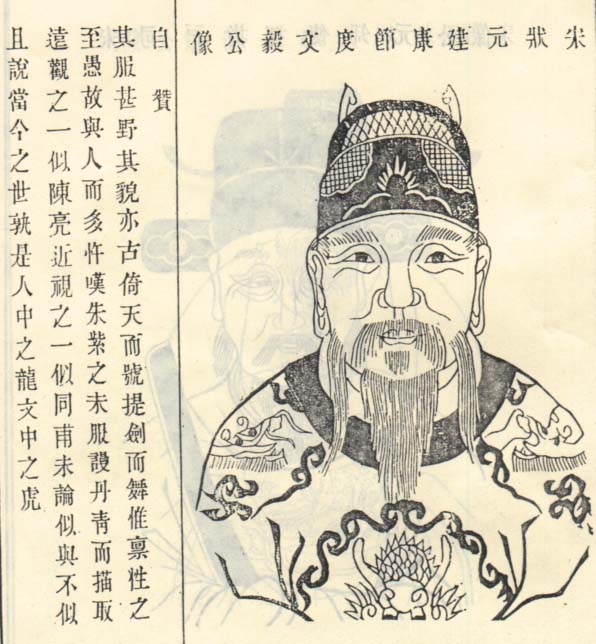 宋狀元建康節度文毅公像
自贊
其服甚野其貌亦古倚天而號提劍而舞惟禀性之
至愚故與人而多忤嘆朱紫之未服謾丹青而描取
遠觀之一似陳亮近視之一似同甫未論似與不似
且說當今之世孰是人中之龍文中之虎